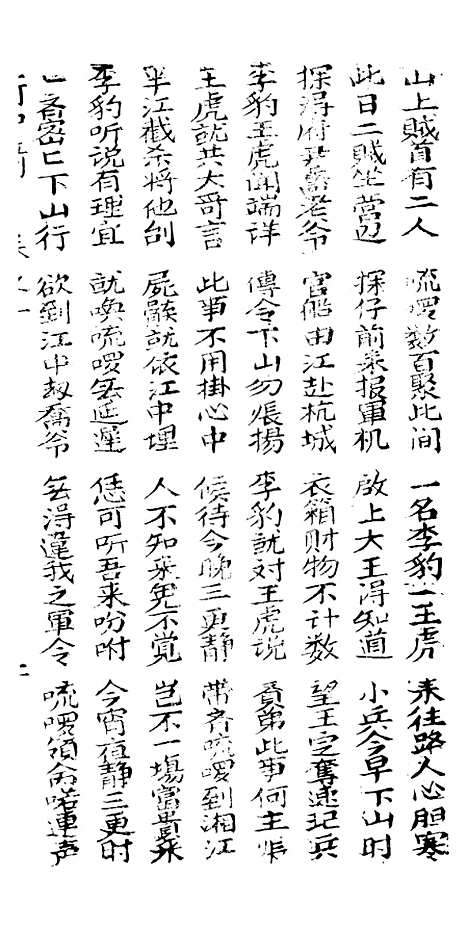 山上贼首有二人 嘍啰数百聚此间 一名李豹一王虎 来往路人心胆寒
此日二贼坐當边 探仔前来报軍机 啟上大王得知道 小兵今早下山时
探淂府尹喬老爷 官船由江赴杭城 衣箱财物不计数 望王定奪速记兵
李豹王虎闻端详 傳令下山勿張揚 李豹就对王虎说 賢弟此事何主张
王虎就共大哥言 此事不用掛心中 候待今晚三更静 带齐嘍啰到湘江
半江截杀将他刣 屍骸就依江中埋 人不知来鬼不觉 岂不一場富贵来
李豹听说有理宜 就唤嘍啰無延遲 恁可听吾来吩咐 今宵夜静三更时
密匕下山行 欲到江中刼喬爷 無淂違我之軍令 嘍啰领命喏連声